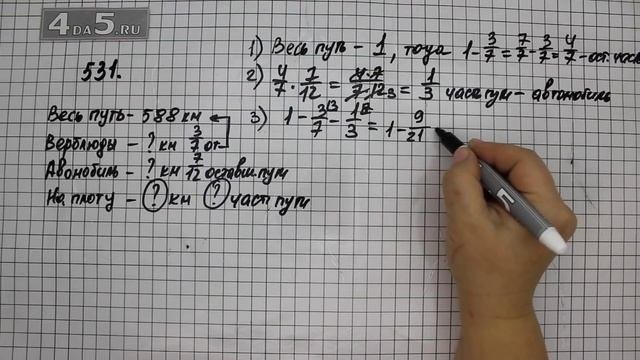 4DA5.RU
531.
Весь путь - 588 км
Верблюды - ? км 3/7 от
Авонобиль - ? км 7/12 оставш. пути
На плоту - ? км ? часть пути
1) Весь путь - 1, тогда 1 - 3/7 = 7/7 - 3/7 = 4/7 - ост. часть
2) 4/7 · 7/12 = 4·7/7·12 3 = 1/3 часть пути - автомобиль
3) 1 - 3/7 - 1/3 = 1 - 9/21